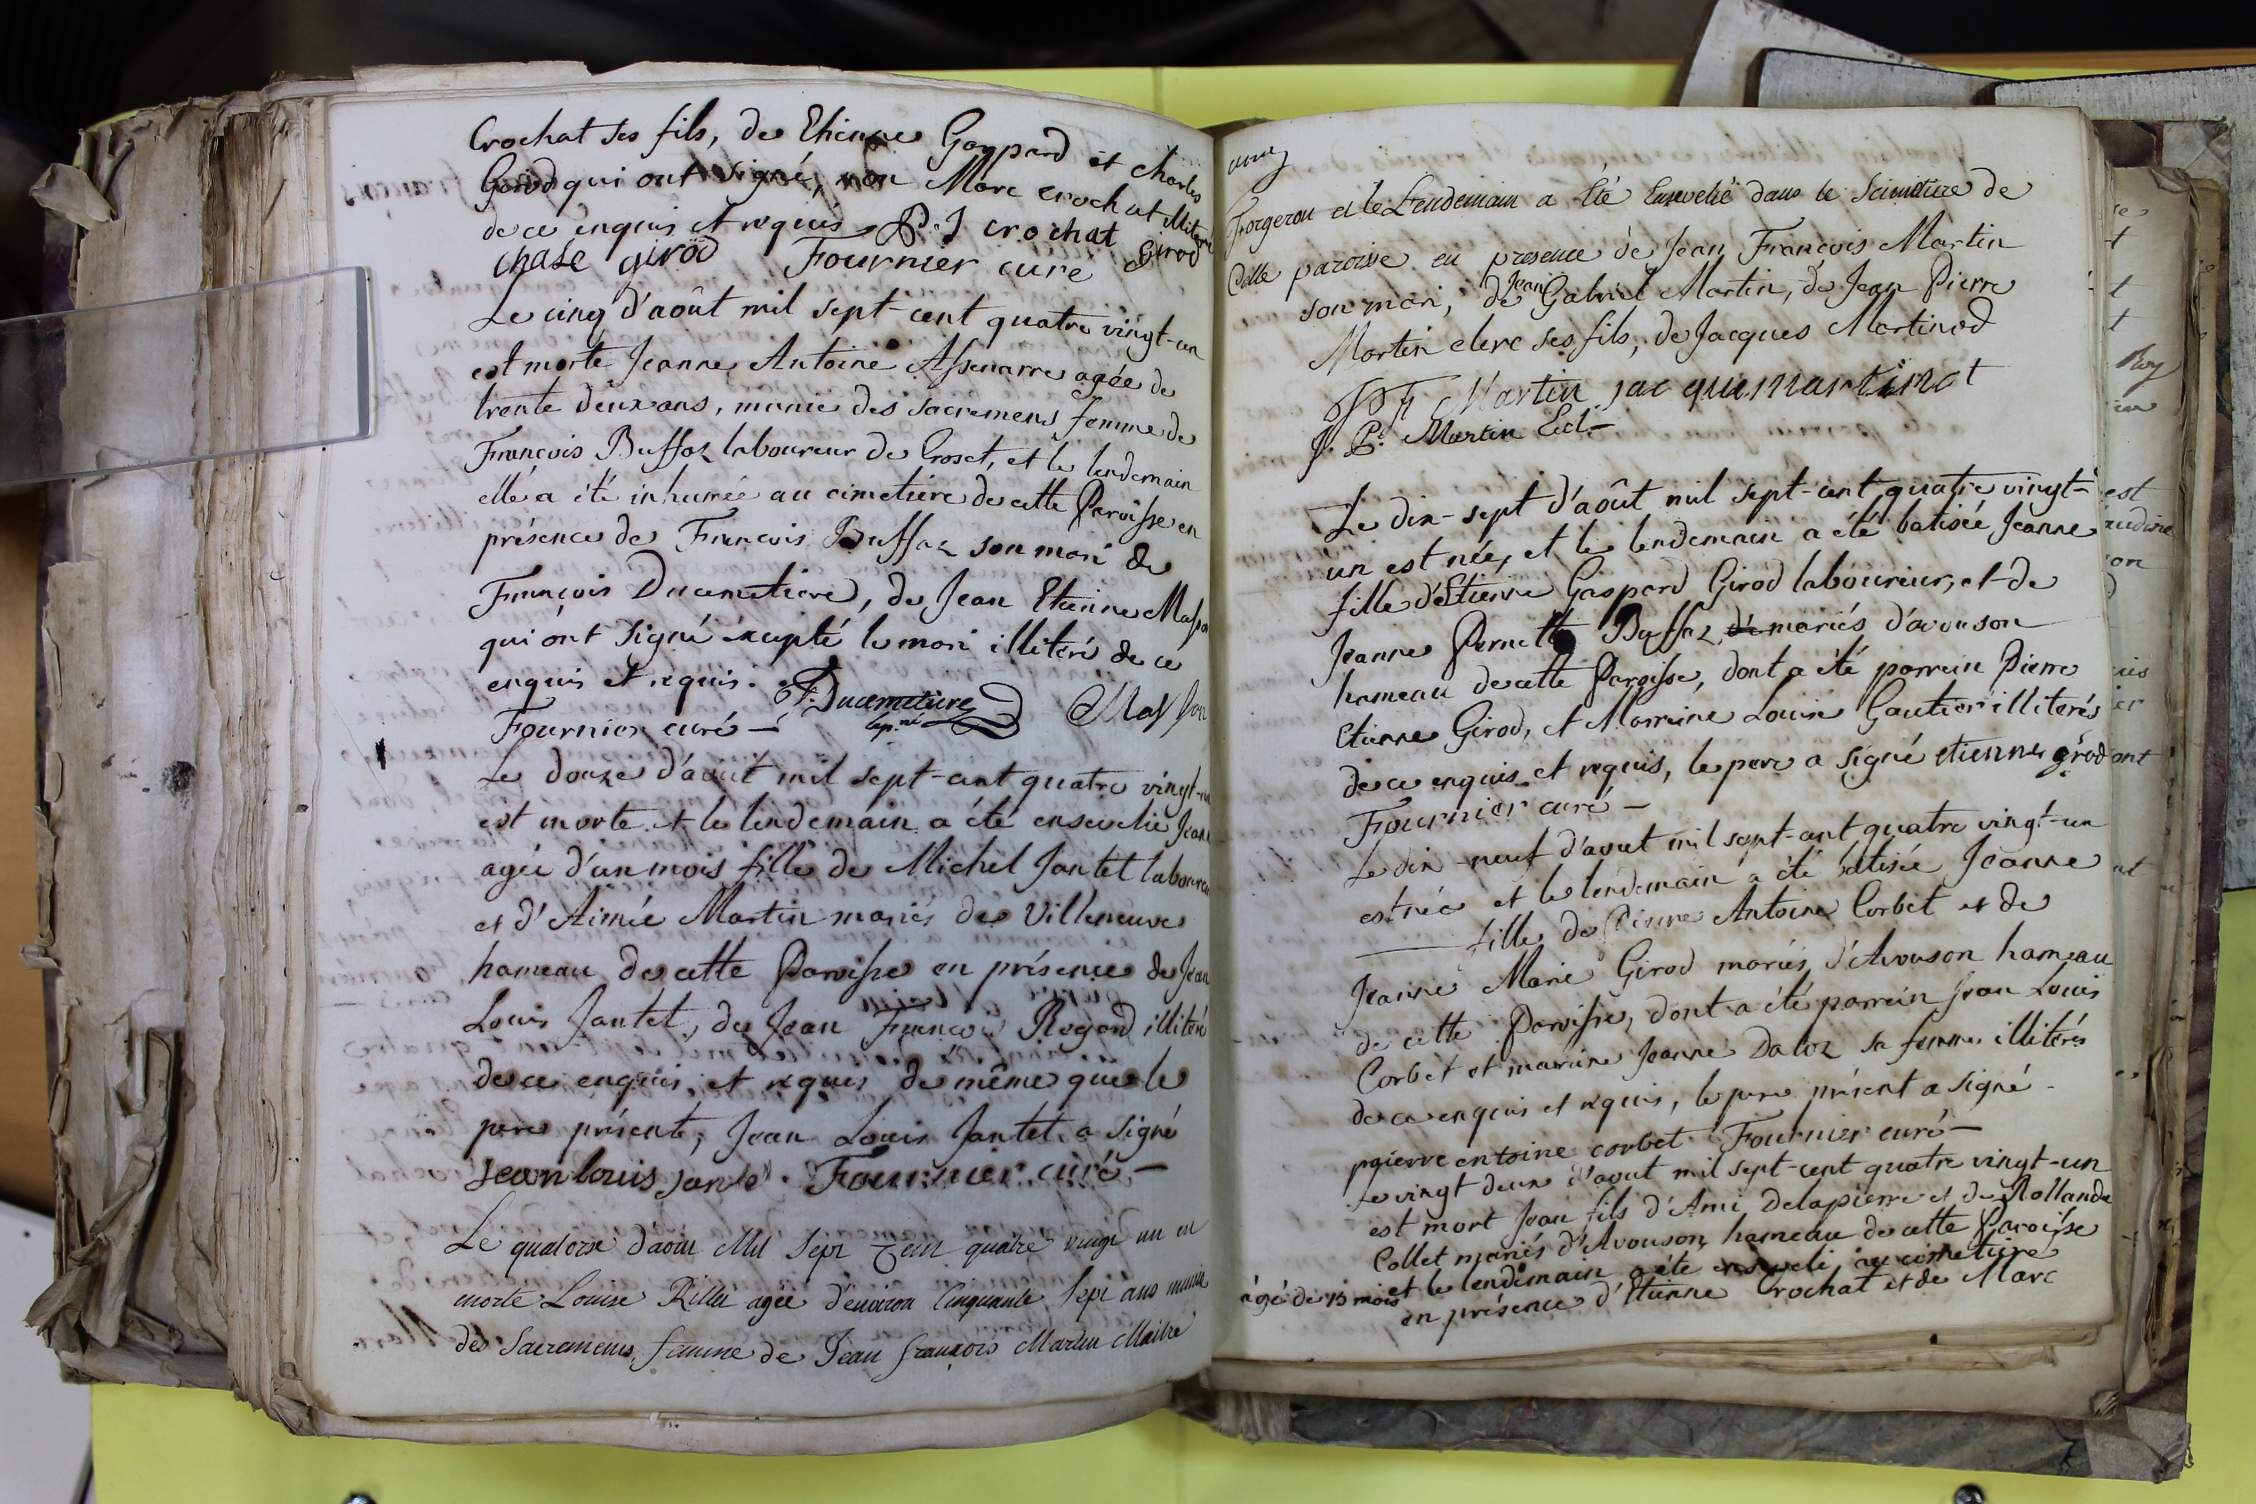 Crochat ses fils, de Etienne Gaspard et charles
Girod qui ont signé, non Marc crochat illiteré
de ce enquis et requis P. J crochat Girod
chale girod Fournier curé
Le cinq d'août mil sept-cent quatre vingt-un
est morte Jeanne Antoine Assenarre agée de
trente deux ans, munie des sacremens femme de
François Buffaz laboureur de Croset, et le lendemain
elle a été inhumée au cimetiére de cette Paroisse en
présence de François Buffaz son mari de
François Ducimetiere, de Jean Etienne Masson
qui ont signé excepté le mari illiteré de ce
enquis et requis. F. Ducimetiere Masson
Fournier curé
Le douze d'aout mil sept-cent quatre vingt-un
est morte et le lendemain a été ensevelie Jeanne
agée d'un mois fille de Michel Jantet laboureur
et d'Aimée Martin mariés de Villeneuve
hameau de cette Paroisse en présence de Jean
Louis Jantet, de Jean François Regard illiteré
de ce enquis et requis de même que le
pere présent, Jean Louis Jantet a signé
jean louis jantet. Fournier curé
Le quatorze d'aout Mil Sept Cent quatre vingt un est
morte Louise Rillet agée d'environ Cinquante Sept ans munie
des Sacremens, femme de Jean françois Martin Maitre
Forgeron et le Lendemain a Eté Ensevelie dans le Scimetiere de
Cette paroisse en presence de Jean François Martin
son mari, de Jean Gabriel Martin, de Jean Pierre
Martin clerc ses fils, de Jacques Martinod
J F Martin jacque martinot
J. P. Martin Ecl.
Le dix-sept d'août mil sept-cent quatre vingt-
un est née, et le lendemain a été batisée Jeanne
fille d'Etienne Gaspard Girod laboureur, et de
Jeanne Pernette Buffaz mariés d'avouson
hameau de cette Paroisse, dont a été parrein Pierre
Etienne Girod, et Marreine Louise Gautier illiterés
de ce enquis et requis, le pere a signé etienne girod
Fournier curé
Le dix-neuf d'aout mil sept-cent quatre vingt-un
est née et le lendemain a été batisée Jeanne
fille de Pierre Antoine Corbet et de
Jeanne Marie Girod mariés d'Avouson hameau
de cette Paroisse, dont a été parrein Jean Louis
Corbet et marreine Jeanne Daloz sa femme illiterés
de ce enquis et requis, le pere présent a signé
pgierre entoine corbet Fournier curé
Le vingt deux d'aout mil sept-cent quatre vingt-un
est mort Jean fils d'Ami Delapierre et de Rollande
Collet mariés d'Avouson hameau de cette Paroisse
agé de 15 mois et le lendemain a été enseveli au cimetiere
en présence d'Etienne Crochat et de Marc